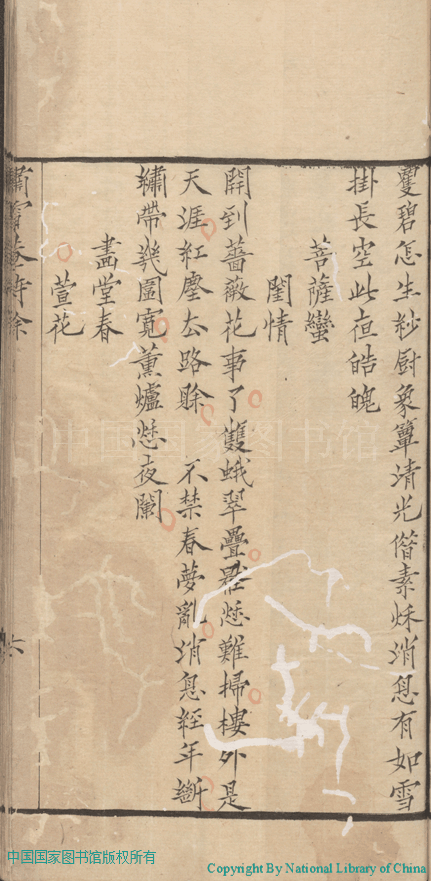 碧怎生紗厨象簟清光偕素秌消息有如雪
掛長空此亱皓魄
菩薩蠻
閨情
開到薔薇花事了雙蛾翠疊愁難掃樓外是
天涯紅塵厺路賒　不禁春夢亂消息經年斷
繡帶幾圍寬薰爐愁夜闌
畫堂春
萱花
嘯雪菴詩餘
六
中国国家图书馆
中国国家图书馆版权所有
Copyright By National Library of China